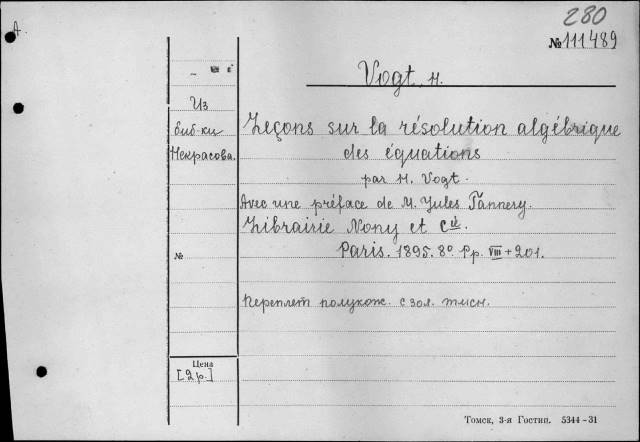 280
№ 111489
Vogt, H.
Из
биб-ки
Некрасова.
Leçons sur la résolution algébrique
des équations
par H. Vogt.
Avec une préface de M. Jules Tannery.
Librairie Nony et Cie.
Paris. 1895. 8º. Pp. VIII + 201.
№
Переплет полукож. с зол. тисн.
Цена
[2 р.]
Томск, 3-я Гостип. 5344-31